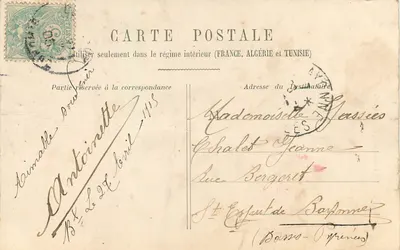 CARTE POSTALE
seulement dans le régime intérieur (FRANCE, ALGÉRIE et TUNISIE)
Partie réservée à la correspondance
Adresse du
Aimable souvenir
Antoinette
Bx Le 27 Avril 1915
Mademoiselle
Chalet Jeanne
Rue Bergeret
St Esprit de Bayonne
(Basses Pyrénées)
BAYONNE